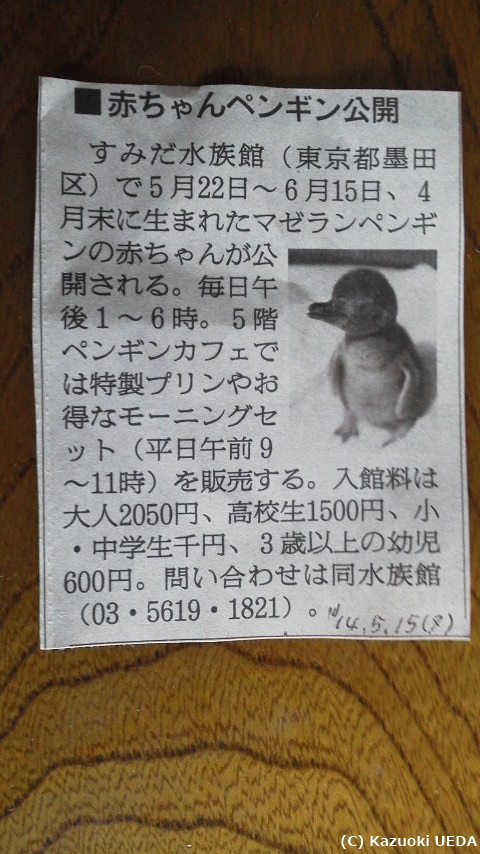 ■赤ちゃんペンギン公開
すみだ水族館（東京都墨田
区）で5月22日～6月15日、4
月末に生まれたマゼランペンギ
ンの赤ちゃんが公
開される。毎日午
後1～6時。5階
ペンギンカフェで
は特製プリンやお
得なモーニングセ
ット（平日午前9
～11時）を販売する。入館料は
大人2050円、高校生1500円、小
・中学生千円、3歳以上の幼児
600円。問い合わせは同水族館
（03・5619・1821）。
'14.5.15(夕)
(C) Kazuoki UEDA